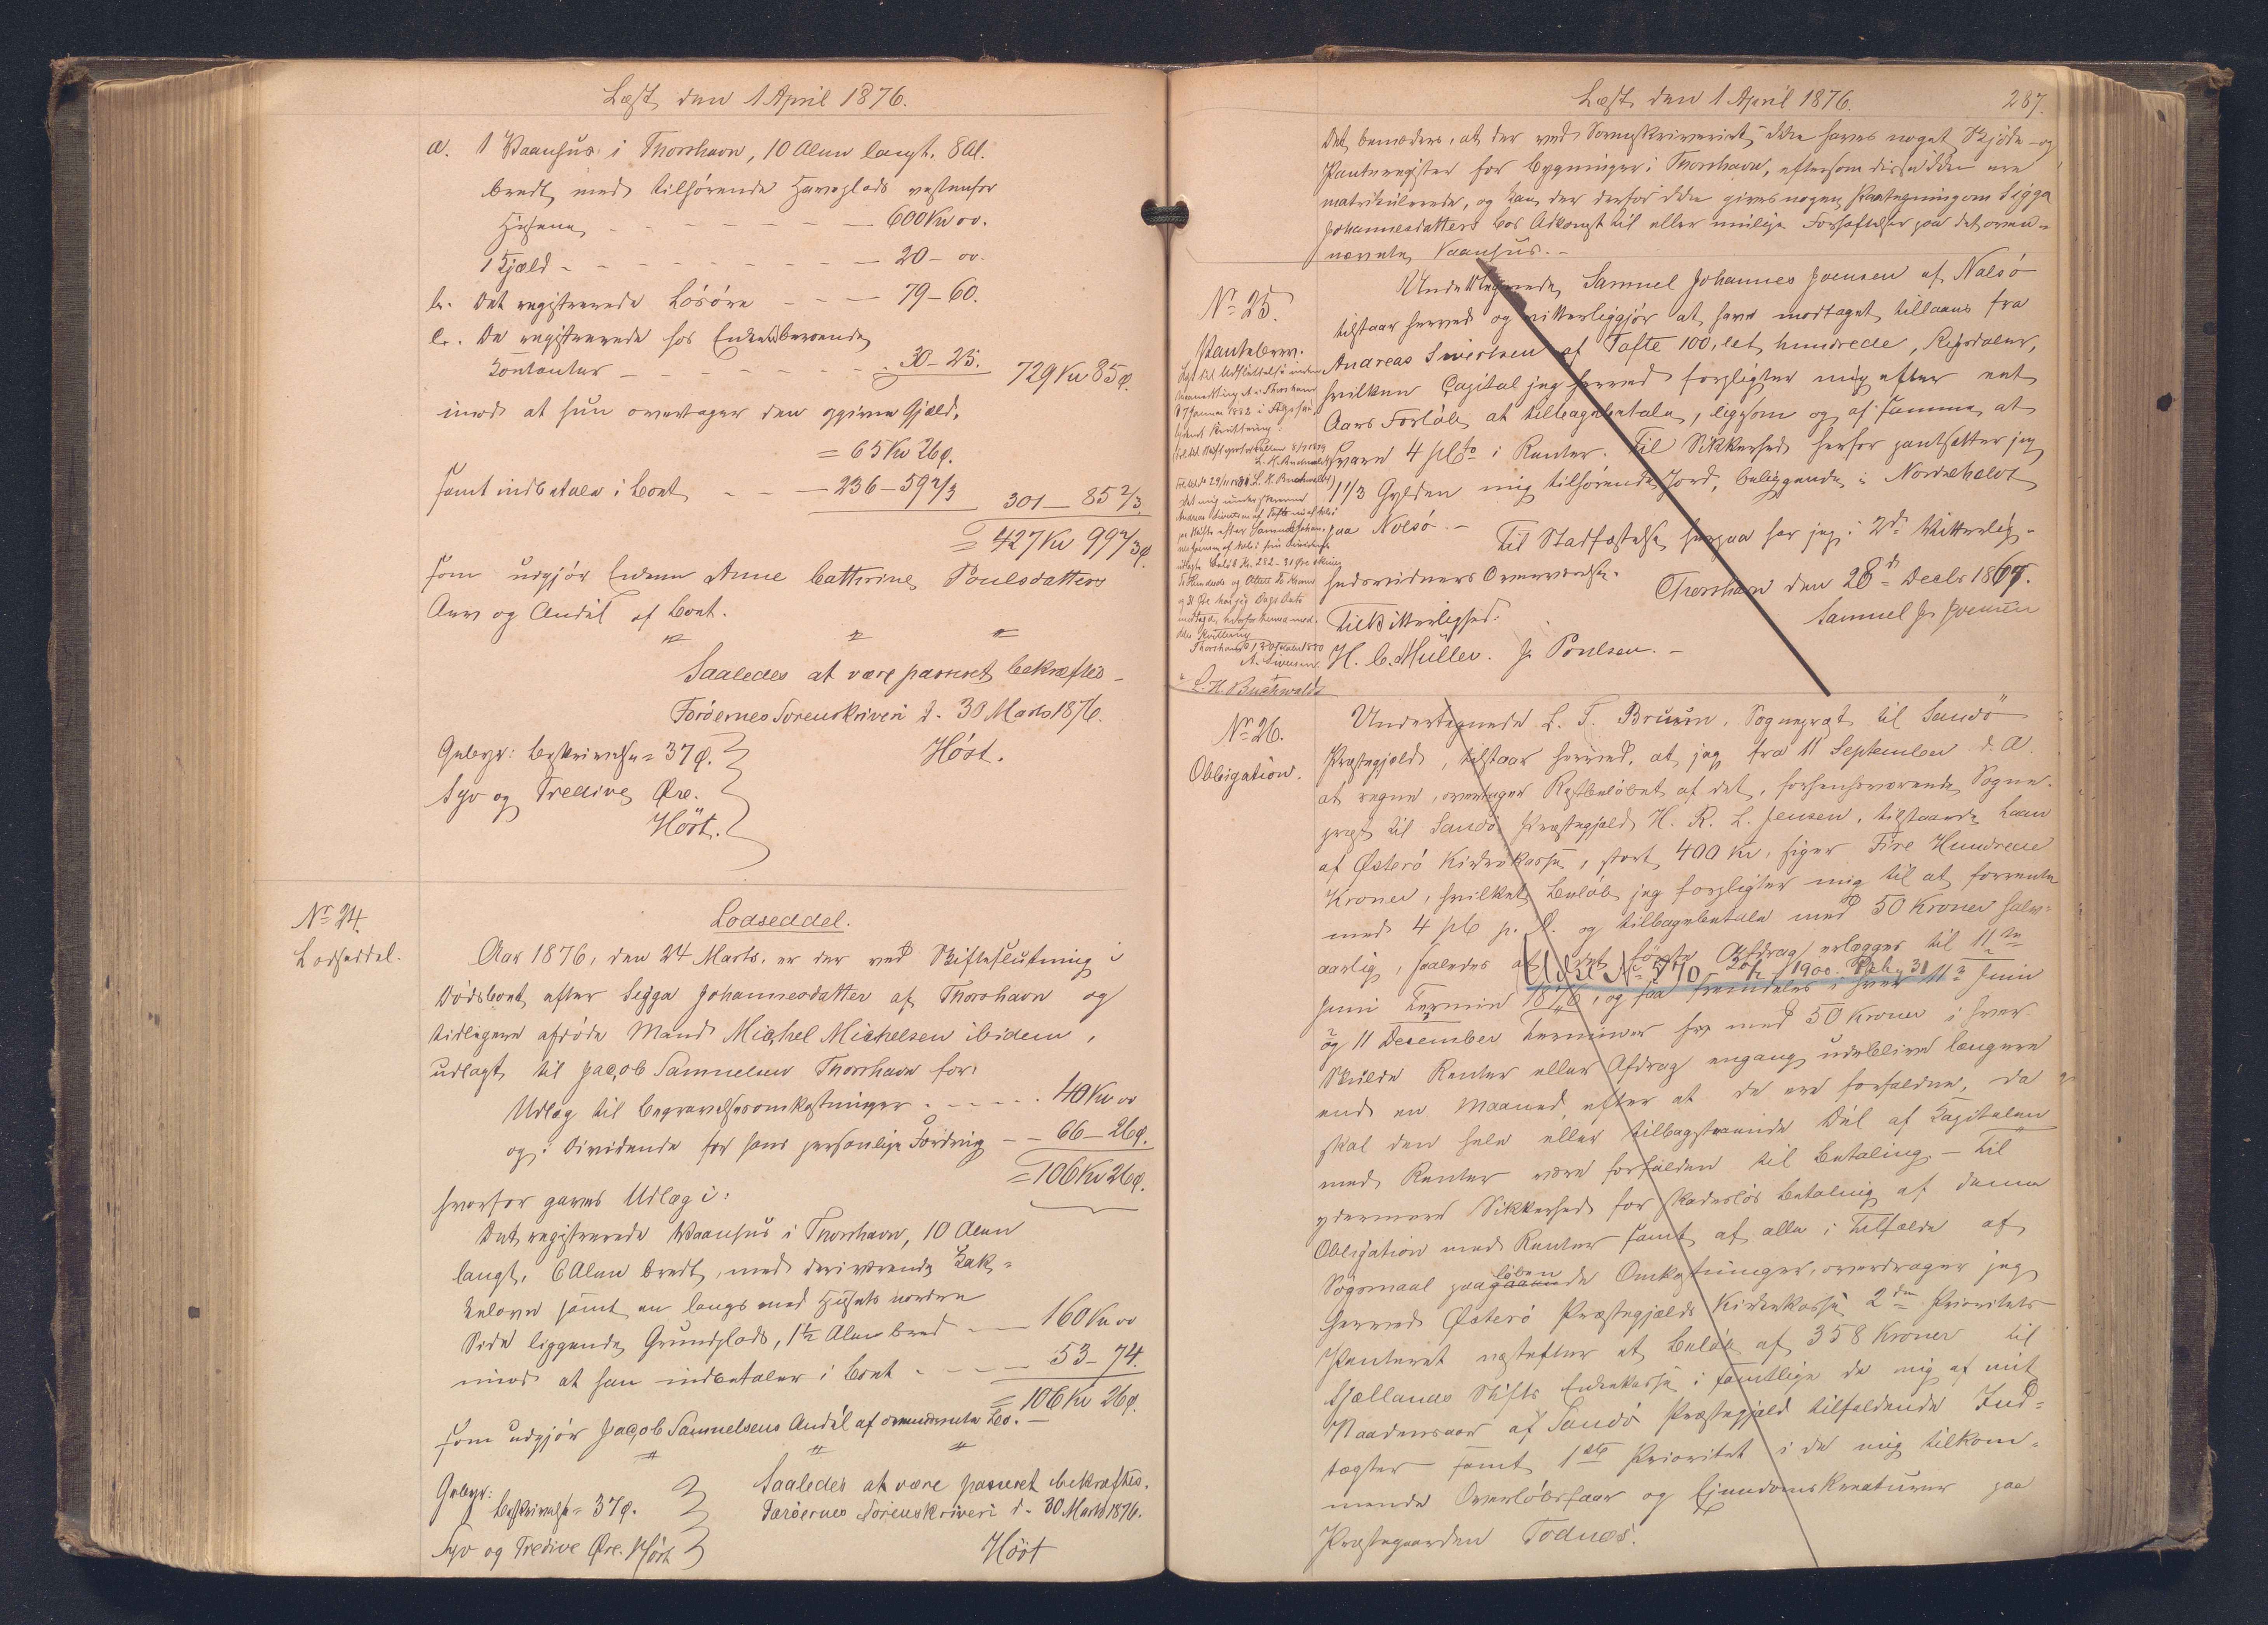 Læst den 1 April 1876.
a. 1 Vaanhus i Thorshavn, 10 Alen langt, 8 Al.
bredt, med tilhørende Haveplads vestenfor
Husene - - - - - - 600 Kr oo.
1 Kjæld - - - - - - 20 - oo.
b. Det registrerede Løsøre - - - 79 - 60.
c. De registrerede hos Enken beroende
Contanter - - - - - - 30 - 25. 729 Kr 85 ø.
imod at hun overtager den opgivne Gjæld,
= 65 Kr 26 ø.
samt indbetaler i Boet - - - 236 - 59 2/3 301 - 85 2/3.
= 427 Kr 99 1/3 ø.
som udgjør Enken Anne Cathrine Poulsdatters
Arv og Andel af Boet.
Saaledes at være passeret bekræftes
Færøernes Sorenskriveri d. 30 Marts 1876.
Høst.
Gebyr: Beskrivelse = 37 ø.
Syv og Tredive Øre.
Höst.
No 24.
Lodseddel.
Lodseddel.
Aar 1876, den 24 Marts, er der ved Skifteslutning i
Dødsboet efter Sigga Johannesdatter af Thorshavn og
tidligere afdøde Mand Michel Michelsen ibidem,
udlagt til Jacob Samuelsen Thorshavn for:
Udlæg til Begravelsesomkostninger - - - - 40 Kr oo
og i Dividende for hans personlige Fordring - - 66 - 26 ø.
= 106 Kr 26 ø.
hvorfor gaves Udlæg i:
Det registrerede Vaanhus i Thorshavn, 10 Alen
langt, 6 Alen bredt, med deriværende Kak-
kelovn samt en langs med Husets nordre
Side liggende Grundplads, 1 1/2 Alen bred - - 160 Kr oo
imod at han indbetaler i Boet - - - - 53 - 74.
= 106 Kr 26 ø.
som udgjør Jacob Samuelsens Andel af Bo.
Gebyr:
Beskrivelse = 37 ø.
Syv og Tredive Øre. Höst
Saaledes at være passeret bekræftes.
Færöernes Sorenskriveri d. 30 Marts 1876.
Höst
Læst den 1 April 1876. 287.
Det bemærkes, at der ved Sorenskriveriet ikke haves noget Skjøde- og
Panteregister for Bygninger i Thorshavn, eftersom disse ikke ere
matrikulerede, og kan der derfor ikke gives nogen Paategning om Sigga
Johannesdatters Bos Adkomst til eller mulige Forhæftelser paa det oven-
nævnte Vaanhus. -
No 25.
Pantebrev.
Undertegnede Samuel Johannes Joensen af Nalsö
tilstaar herved og vitterliggjør at have modtaget tillaans fra
Andreas Sivertsen af Tofte 100, eet hundrede, Rigsdaler,
hvilken Capital jeg herved forpligter mig efter eet
Aars Forløb at tilbagebetale, ligesom og af samme at
svare 4 pCto i Renter. Til Sikkerhed herfor pantsætter jeg
1 1/3 Gylden mig tilhørende Jord, beliggende i Nordrehalvt
paa Nolsø. - Til Stadfæstelse herpaa har jeg i 2de Vitterlig-
hedsvidners Overværelse.
Thorshavn den 28d Decbr 1867.
Samuel J. Joensen
Til Vitterlighed:
H. C. Müller. J. Poulsen. -
L. H. Buchwaldt
No 26.
Obligation.
Undertegnede L. T. Bruun, Sognepræst til Sandö
Præstegjeld, tilstaar herved, at jeg fra 11 September d. A.
at regne, overtager Restbeløbet af det, forhenværende Sogne-
præst til Sandö Præstegjeld H. R. L. Jensen, tilstaaede Laan
af Østerö Kirkekasse, stort 400 Kr, siger Fire Hundrede
Kroner, hvilket Beløb jeg forpligter mig til at forrente
med 4 pC p. A. og tilbagebetale med 50 Kroner halv-
aarlig, saaledes at det første Afdrag erlægges til 11te
Udsl. No 570 - 1900.
Juni Termin 1876, og saa fremdeles i hver 11te Juni
og 11 December Terminer med 50 Kroner i hver.
Skulde Renter eller Afdrag engang udeblive længere
end en Maaned, efter at de ere forfaldne, da
skal den hele eller tilbagestaaende Del af Kapitalen
med Renter være forfalden til Betaling. - Til
ydermere Sikkerhed for skadesløs Betaling af denne
Obligation med Renter samt af alle i Tilfælde af
Søgsmaal paaløbende Omkostninger, overdrager jeg
herved Østerö Præstegjelds Kirkekasse 2den Prioritets
Panteret næstefter et Beløb af 358 Kroner til
Sjællands Stifts Enkekasse i samtlige de mig af mit
Naadensaar af Sandö Præstegjeld tilfaldende Ind-
tægter samt 1ste Prioritet i de mig tilkom-
mende Overløbsfaar og Ejendomskreaturer paa
Præstegaarden Todnæs.